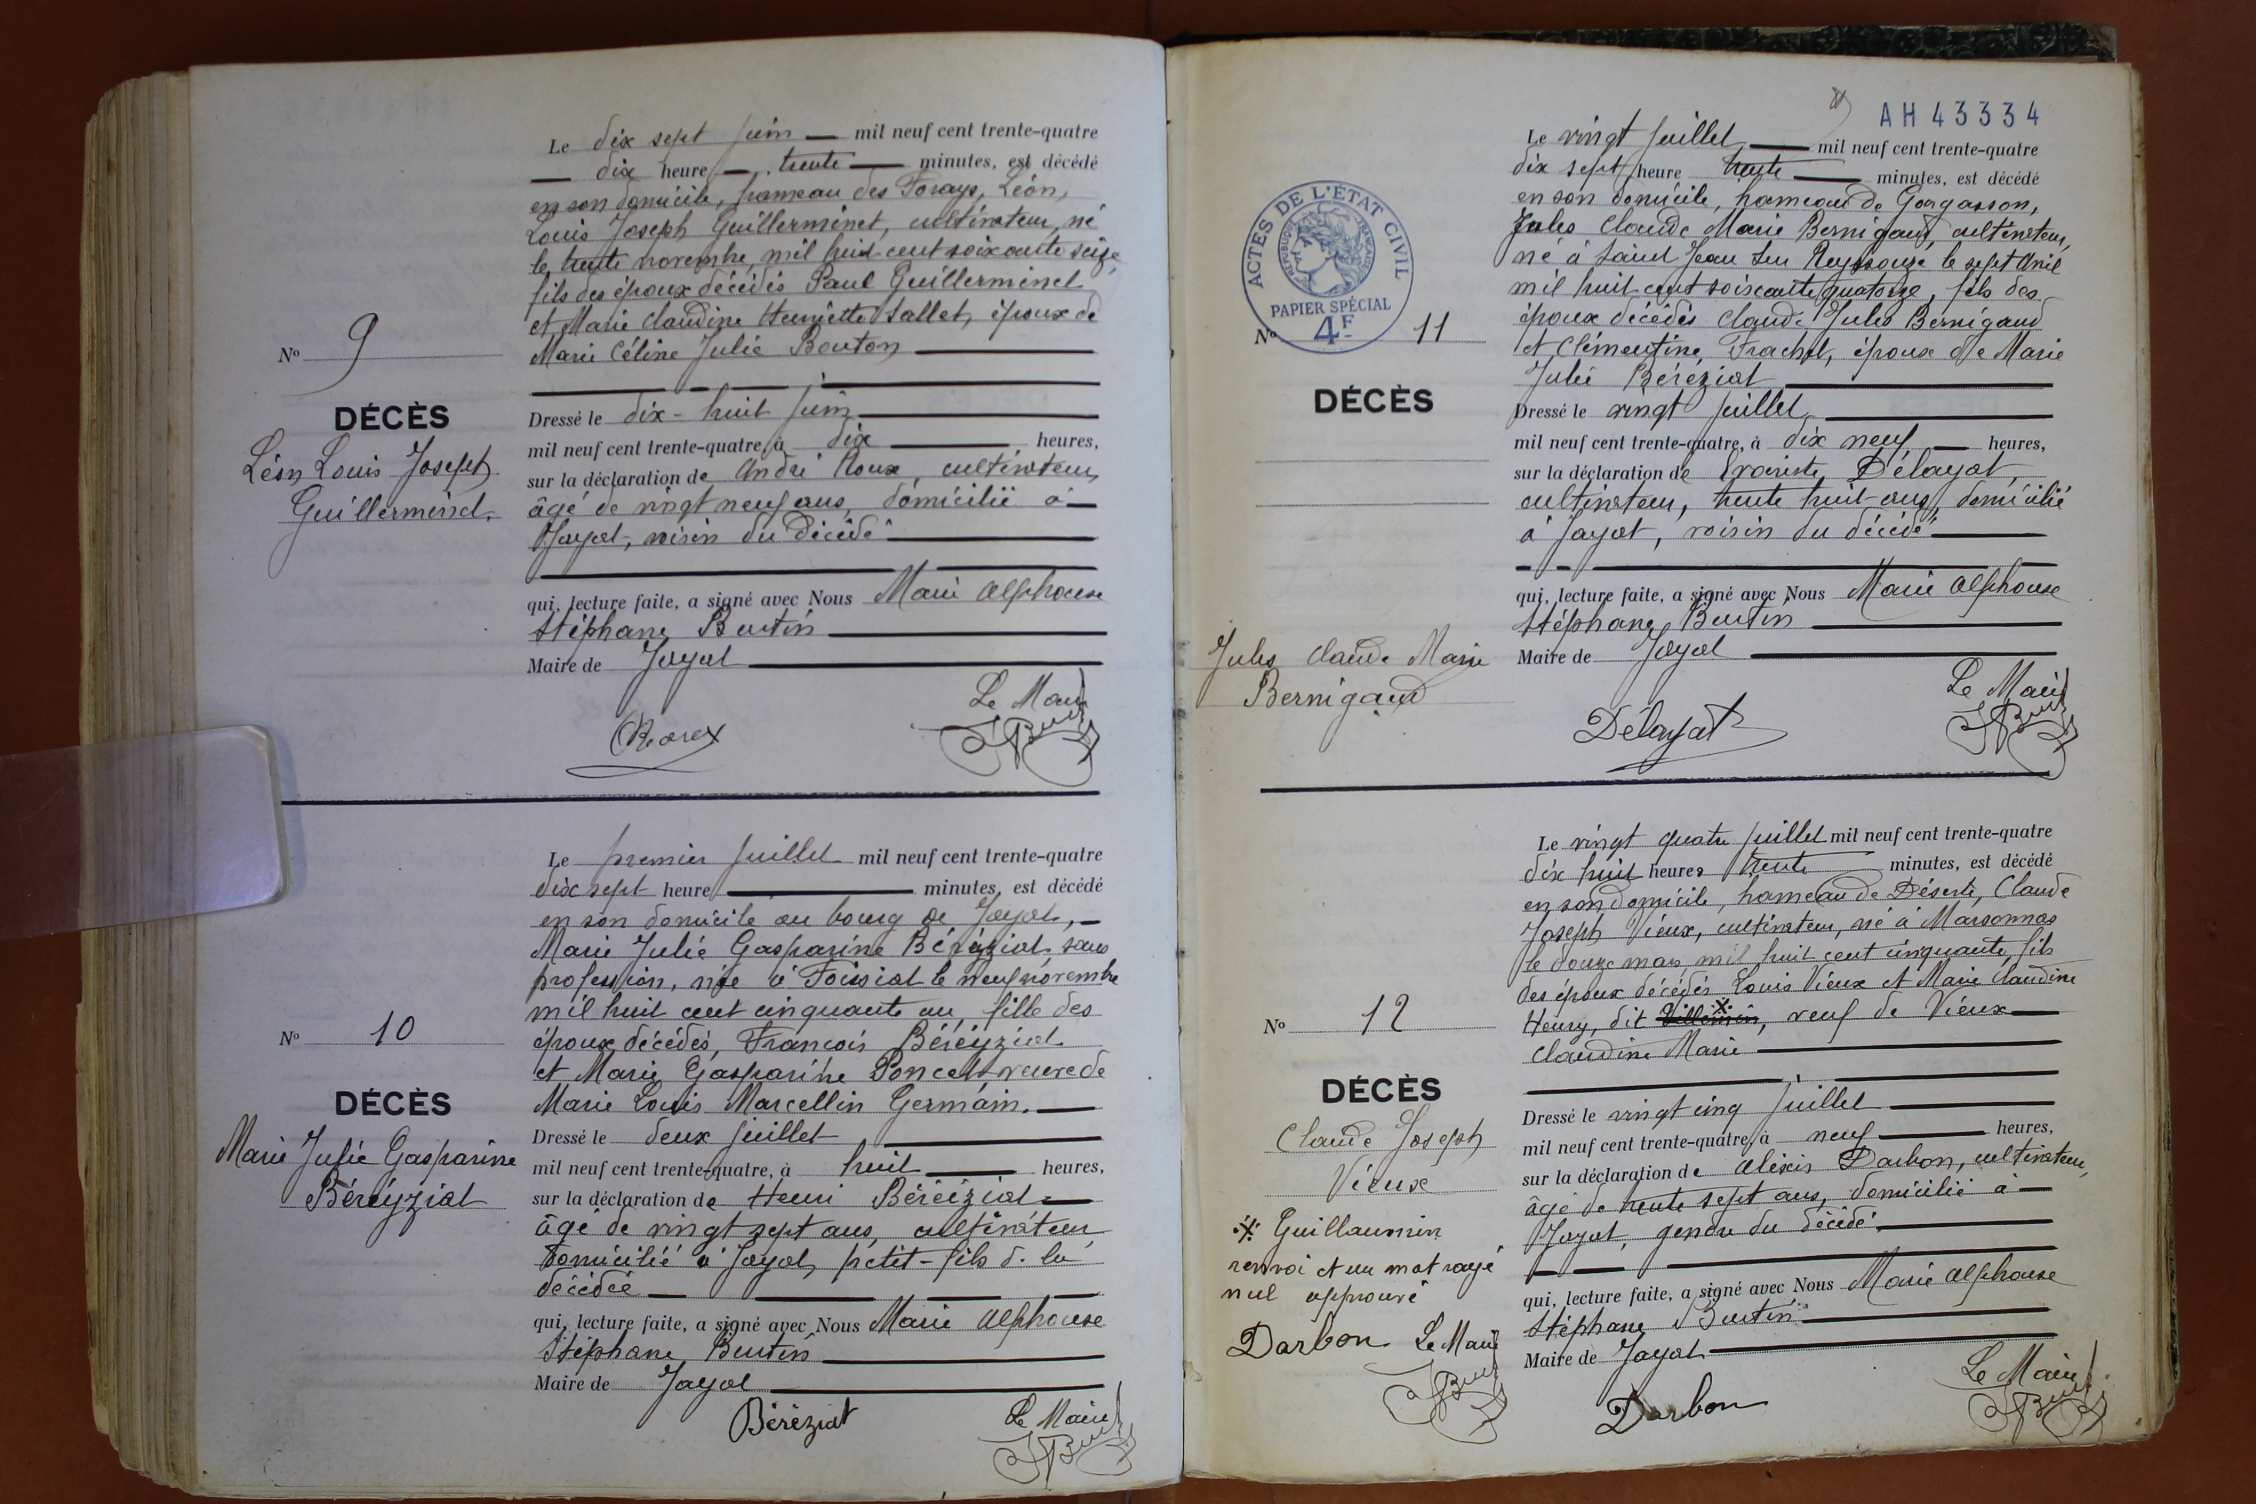 Le dix sept juin mil neuf cent trente-quatre
dix heure trente minutes, est décédé
en son domicile, hameau des Forays, Léon,
Louis Joseph Guillerminet, cultivateur, né
le trente novembre, mil huit cent soixante seize,
fils des époux décédés Paul Guillerminet
et Marie Claudine Henriette Sallet, époux de
Marie Céline Julie Bouton
N° 9
DÉCÈS
Léon Louis Joseph
Guillerminet.
Dressé le dix-huit juin
mil neuf cent trente-quatre, à dix heures,
sur la déclaration de André Roux, cultivateur,
âgé de vingt neuf ans, domicilié à
Jayat, voisin du décédé
qui, lecture faite, a signé avec Nous Marie Alphonse
Stéphane Buntin
Maire de Jayat
Le Maire
Le premier juillet mil neuf cent trente-quatre
dix sept heure minutes, est décédé
en son domicile au bourg de Jayat,
Marie Julie Gasparine Béréyziat sans
profession, née à Foissiat le neuf novembre
mil huit cent cinquante un, fille des
époux décédés, François Béréyziat
et Marie Gasparine Poncet veuve de
Marie Louis Marcellin Germain.
N° 10
DÉCÈS
Marie Julie Gasparine
Béréyziat
Dressé le deux juillet
mil neuf cent trente-quatre, à huit heures,
sur la déclaration de Henri Béréziat
âgé de vingt sept ans, cultivateur
domicilié à Jayat, petit-fils de la
décédée
qui, lecture faite, a signé avec Nous Marie Alphonse
Stéphane Buntin
Maire de Jayat
Béréziat
Le Maire
AH 43334
ACTES DE L'ÉTAT CIVIL
RÉPUBLIQUE FRANÇAISE
PAPIER SPÉCIAL
4F
Le vingt juillet mil neuf cent trente-quatre
dix sept heure trente minutes, est décédé
en son domicile, hameau de Gorgasson,
Jules Claude Marie Bernigaud, cultivateur,
né à Saint Jean sur Reyssouze le sept Avril
mil huit cent soixante quatorze, fils des
époux décédés Claude Jules Bernigaud
et Clémentine Frachet, époux de Marie
Julie Béréziat
N° 11
DÉCÈS
Jules Claude Marie
Bernigaud
Dressé le vingt juillet
mil neuf cent trente-quatre, à dix neuf heures,
sur la déclaration de Evariste Délayat,
cultivateur, trente huit ans, domicilié
à Jayat, voisin du décédé
qui, lecture faite, a signé avec Nous Marie Alphonse
Stéphane Buntin
Maire de Jayat
Délayat
Le Maire
Le vingt quatre juillet mil neuf cent trente-quatre
dix huit heures trente minutes, est décédé
en son domicile, hameau de Déserts, Claude
Joseph Vieux, cultivateur, né à Marsonnas
le douze mars mil huit cent cinquante, fils
des époux décédés Louis Vieux et Marie Claudine
Henry, dit Villemin, veuf de Vieux
Claudine Marie
N° 12
DÉCÈS
Claude Joseph
Vieux
※ Guillaumin
renvoi et un mot rayé
nul approuvé
Darbon Le Maire
Dressé le vingt cinq juillet
mil neuf cent trente-quatre, à neuf heures,
sur la déclaration de Alexis Darbon, cultivateur,
âgé de trente sept ans, domicilié à
Jayat, gendre du décédé
qui, lecture faite, a signé avec Nous Marie Alphonse
Stéphane Buntin
Maire de Jayat
Darbon
Le Maire